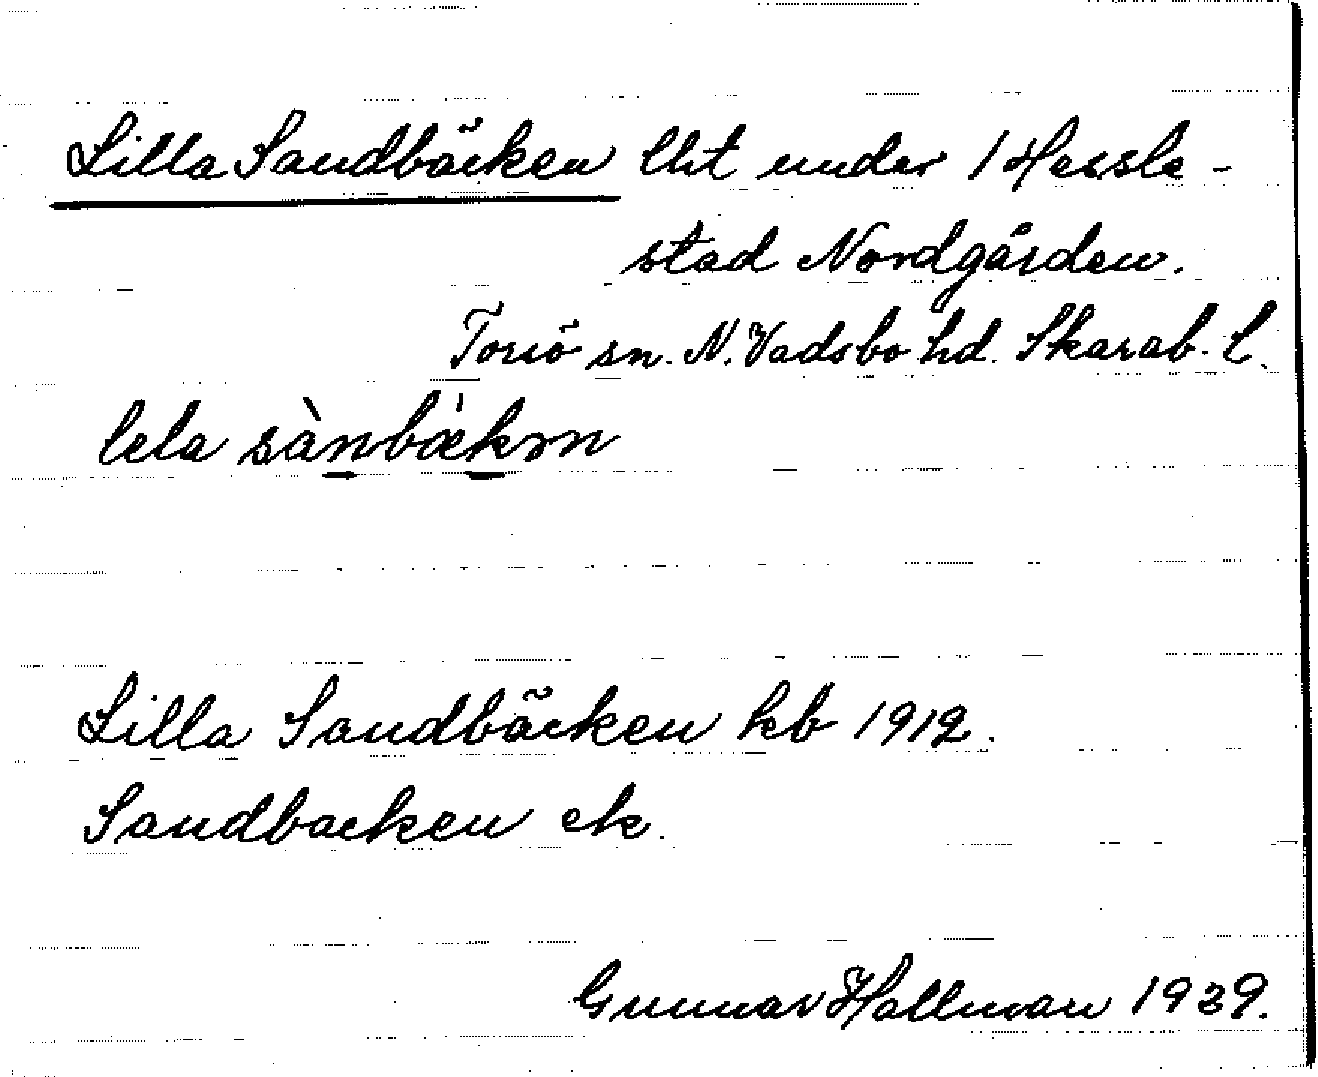 Lilla Sandbäcken lht under 1 Hessle-
stad Nordgården.
Torsö sn. N. Vadsbo hd. Skarab. l.
lela sànbæ̀kən
Lilla Sandbäcken kb 1912.
Sandbacken ek.
Gunnar Hallman 1939.